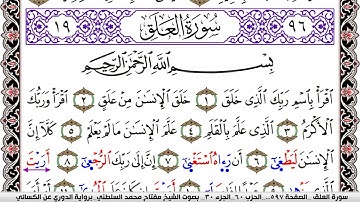 ١٩ سُورَةُ الْعَلَقِ ٩٦
بِسْمِ اللَّهِ الرَّحْمَٰنِ الرَّحِيمِ
اقْرَأْ بِاسْمِ رَبِّكَ الَّذِي خَلَقَ ١ خَلَقَ الْإِنسَٰنَ مِنْ عَلَقٍ ٢ اقْرَأْ وَرَبُّكَ
الْأَكْرَمُ ٣ الَّذِي عَلَّمَ بِالْقَلَمِ ٤ عَلَّمَ الْإِنسَٰنَ مَا لَمْ يَعْلَمْ ٥ كَلَّا إِنَّ
الْإِنسَٰنَ لَيَطْغَىٰ ٦ أَن رَّءَاهُ اسْتَغْنَىٰ ٧ إِنَّ إِلَىٰ رَبِّكَ الرُّجْعَىٰ ٨ أَرَيْتَ
سورة العلق الصفحة ٥٩٧ .. الحزب ٦٠ الجزء ٣٠ بصوت الشيخ مفتاح محمد السلطني برواية الدوري عن الكسائي